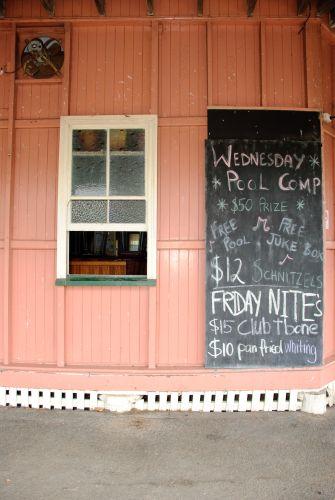 WEDNESDAY
* POOL COMP *
* $50 PRIZE *
FREE POOL ♫ FREE JUKE BOX
$12 SCHNITZELS
FRIDAY NITE's
$15 Club tbone
$10 pan fried whiting